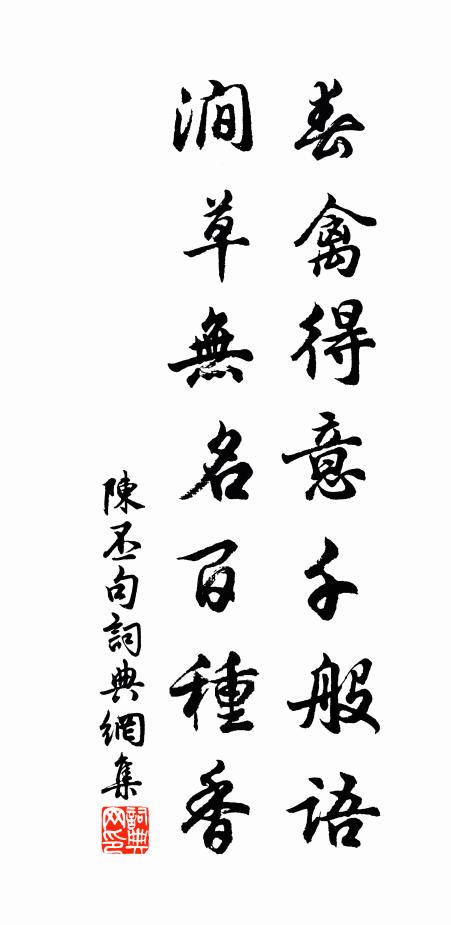 春禽得意千般語
澗草無名百種香
陳丕句詞典網集
詞典網印